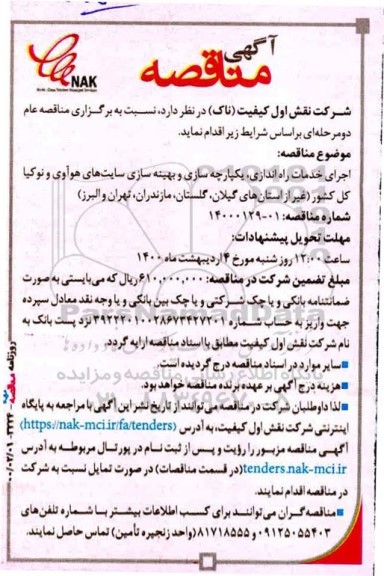 آگهی
مناقصه
NAK
شرکت نقش اول کیفیت (ناک) در نظر دارد، نسبت به برگزاری مناقصه عام
دو مرحله‌ای براساس شرایط زیر اقدام نماید.
موضوع مناقصه:
اجرای خدمات راه اندازی، یکپارچه سازی و بهینه سازی سایت‌های هوآوی و نوکیا
کل کشور (غیر از استان‌های گیلان، گلستان، مازندران، تهران و البرز)
شماره مناقصه: ۰۱-۱۴۰۰۰۱۲۹
مهلت تحویل پیشنهادات:
ساعت ۱۲:۰۰ روز شنبه مورخ ۴ اردیبهشت ماه ۱۴۰۰
مبلغ تضمین شرکت در مناقصه: ۶۱۰,۰۰۰,۰۰۰ ریال که می‌بایستی به صورت
ضمانتنامه بانکی و یا چک شرکتی و یا چک بین بانکی و یا وجه نقد معادل سپرده
جهت واریز به حساب شماره نزد پست بانک به
نام شرکت نقش اول کیفیت مطابق با اسناد مناقصه ارایه گردد.
■ سایر موارد در اسناد مناقصه درج گردیده است.
■ هزینه درج آگهی بر عهده برنده مناقصه خواهد بود.
■ لذا داوطلبان شرکت در مناقصه می‌توانند از تاریخ نشر این آگهی با مراجعه به پایگاه
اینترنتی شرکت نقش اول کیفیت، به آدرس (https://nak-mci.ir/fa/tenders)
آگهی مناقصه مزبور را رؤیت و پس از ثبت نام در پورتال مربوطه به آدرس
tenders.nak-mci.ir (در قسمت مناقصات) در صورت تمایل نسبت به شرکت
در مناقصه اقدام نمایند.
■ مناقصه گران می‌توانند برای کسب اطلاعات بیشتر با شماره تلفن‌های
۰۹۱۲۵۰۵۵۴۰۳ و ۸۱۷۱۸۵۵۵ (واحد زنجیره تأمین) تماس حاصل نمایند.